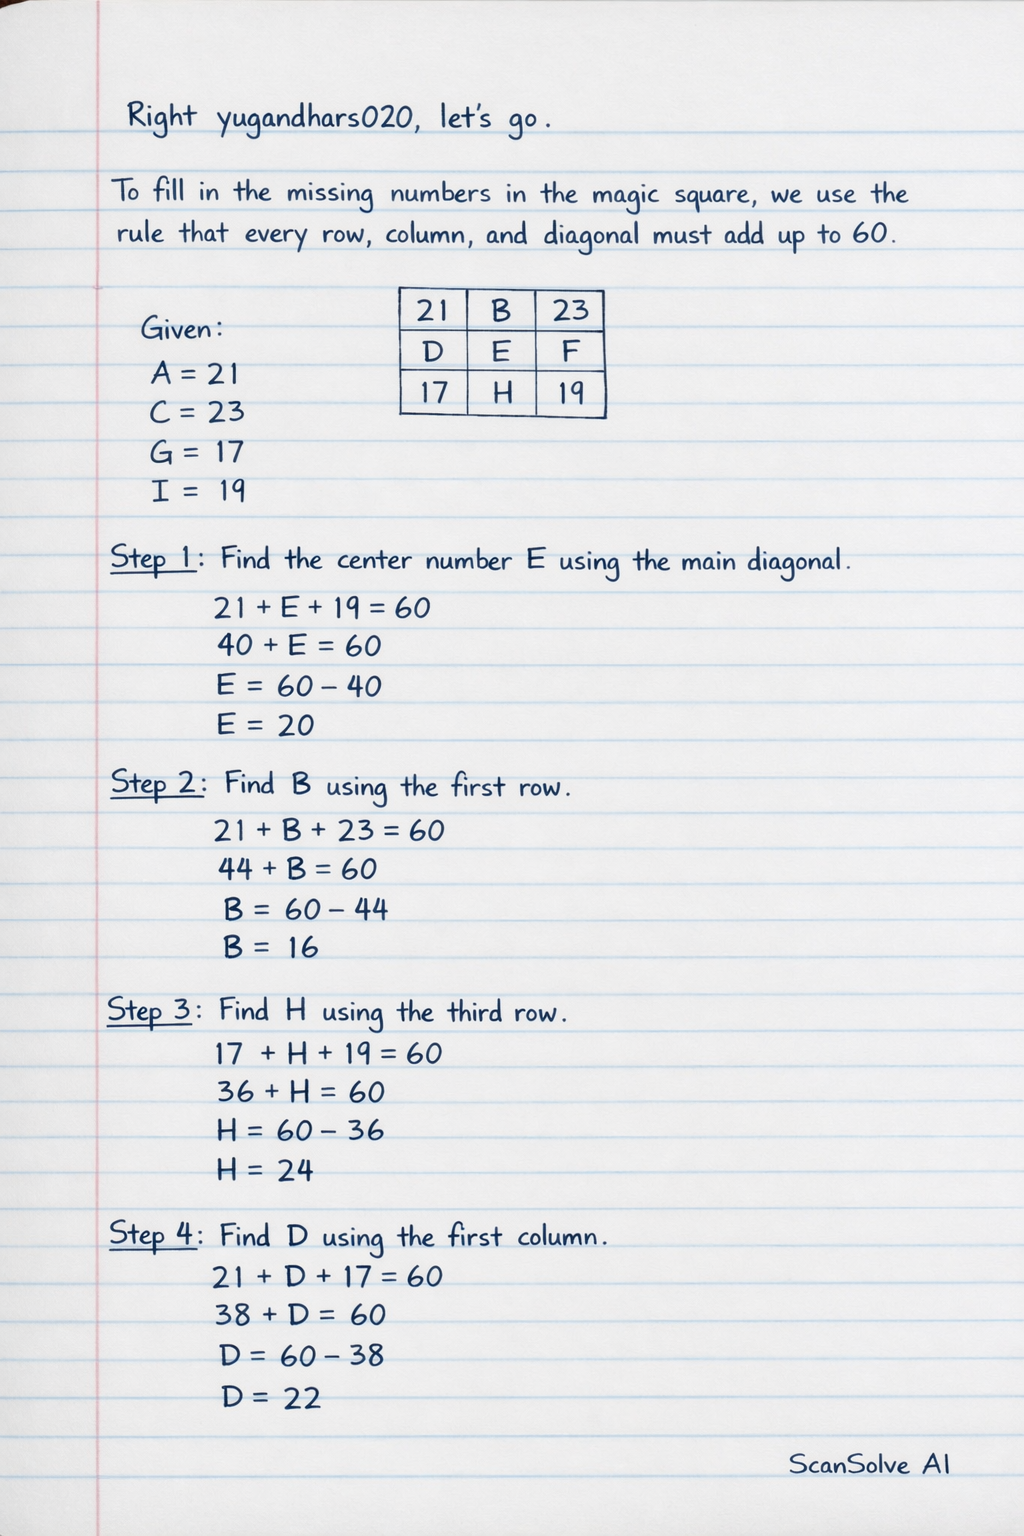 Right yugandhars020, let's go.
To fill in the missing numbers in the magic square, we use the
rule that every row, column, and diagonal must add up to 60.
Given:
A = 21
C = 23
G = 17
I = 19
21 B 23
D E F
17 H 19
Step 1: Find the center number E using the main diagonal.
21 + E + 19 = 60
40 + E = 60
E = 60 - 40
E = 20
Step 2: Find B using the first row.
21 + B + 23 = 60
44 + B = 60
B = 60 - 44
B = 16
Step 3: Find H using the third row.
17 + H + 19 = 60
36 + H = 60
H = 60 - 36
H = 24
Step 4: Find D using the first column.
21 + D + 17 = 60
38 + D = 60
D = 60 - 38
D = 22
ScanSolve AI